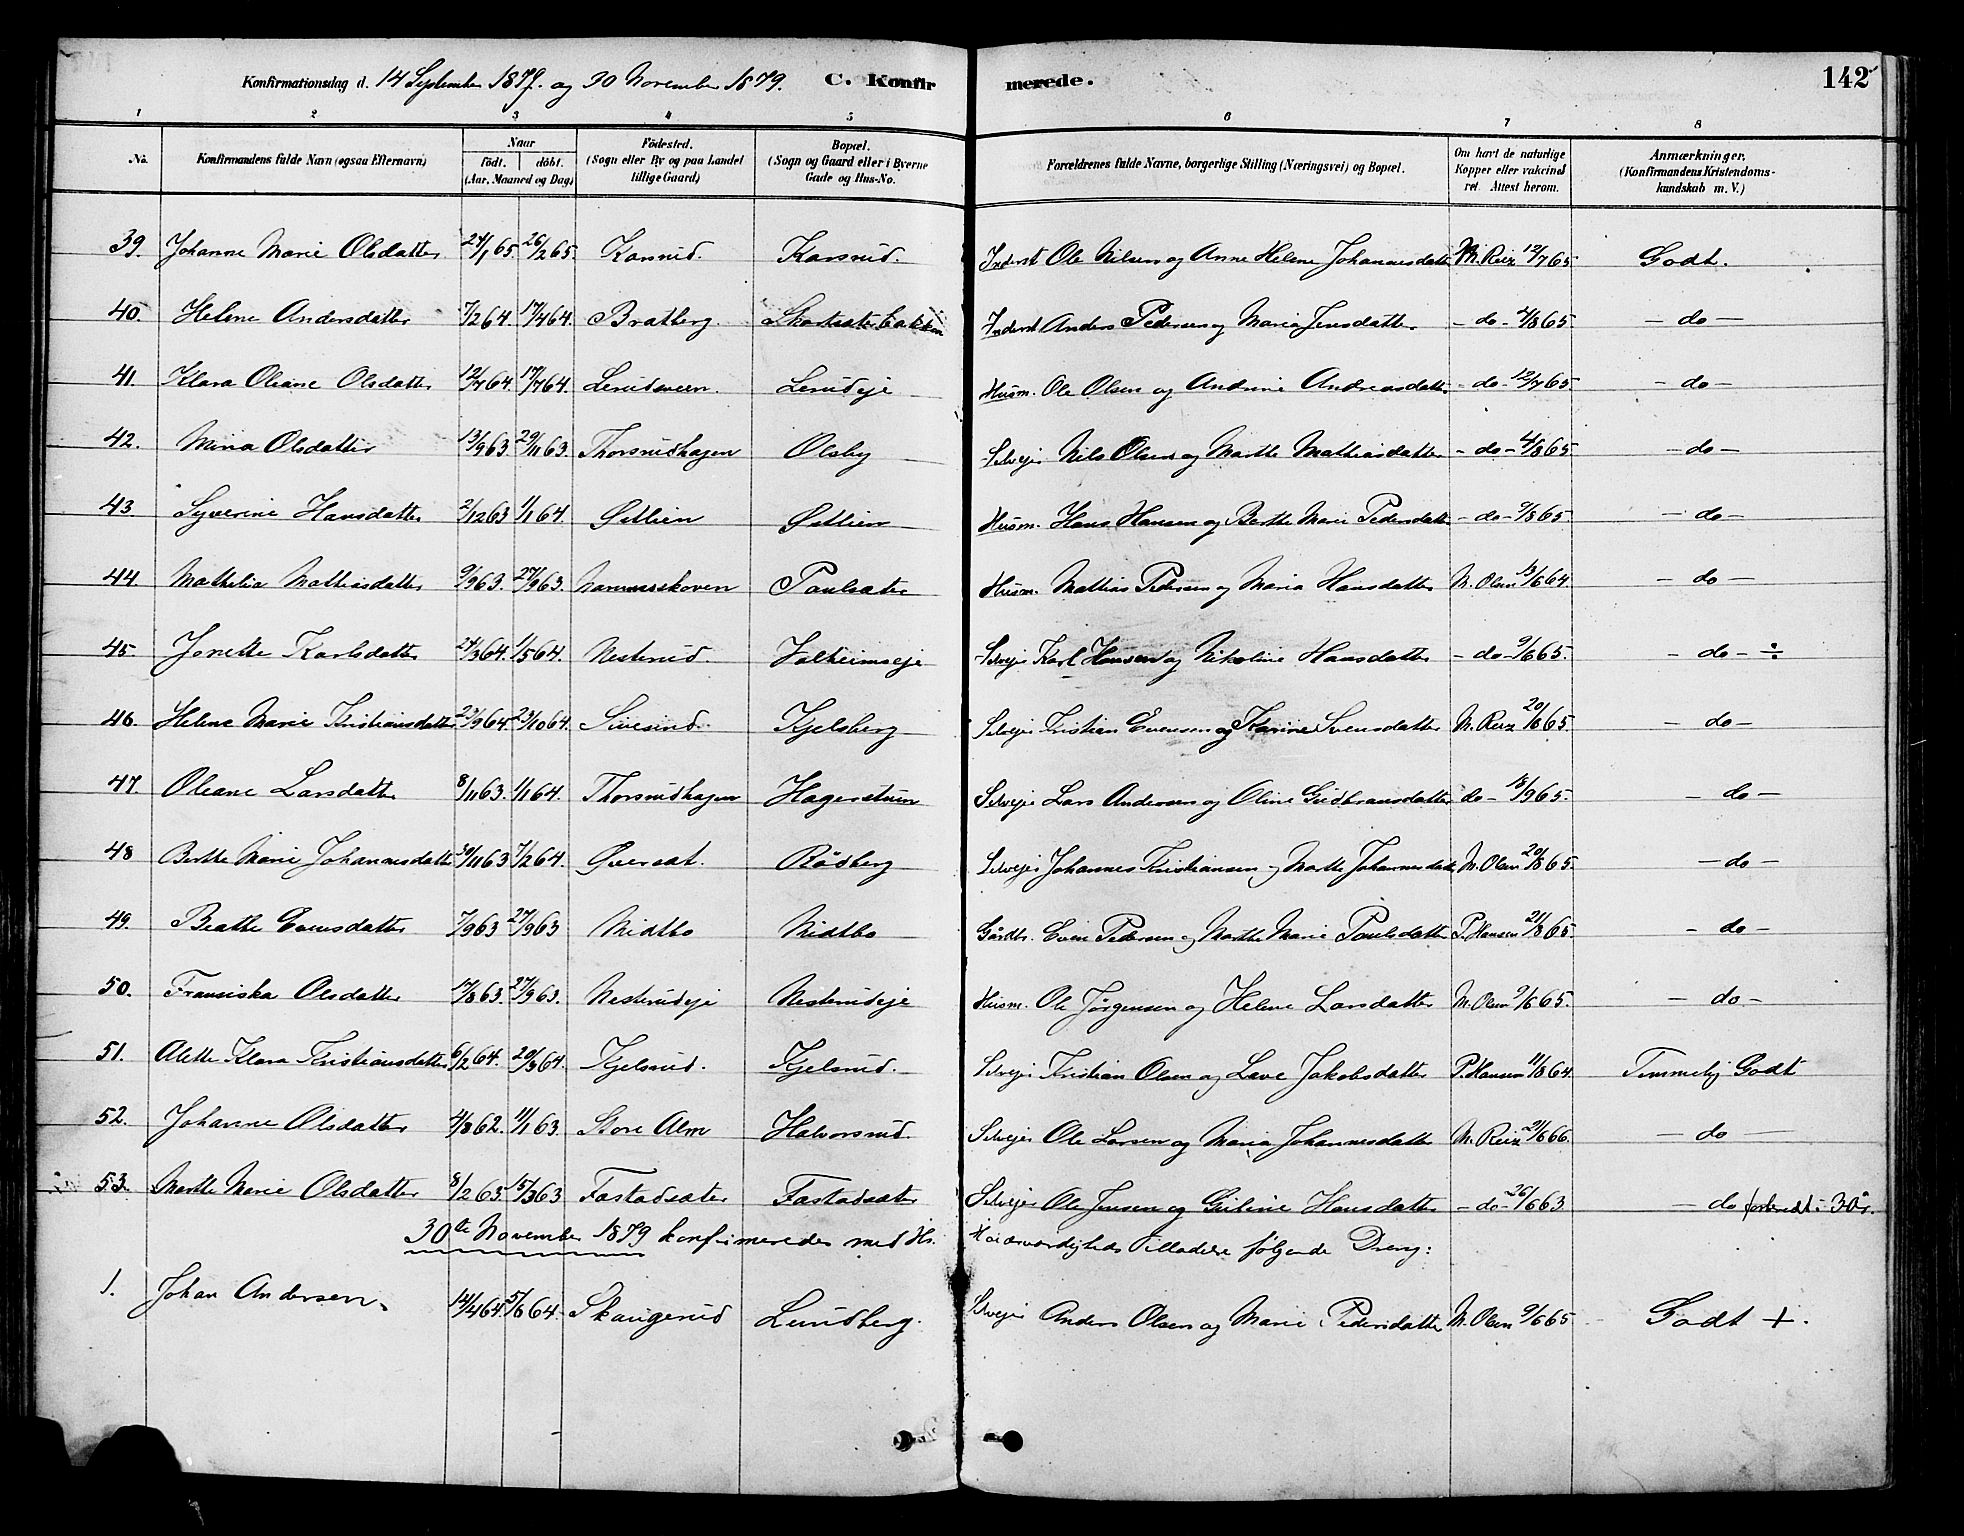 Konfirmationsdag d. 14 September 1879. og 30 November 1879. C. Konfirmerede. 142
1 2 3 4 5 6 7 8
No. Konfirmandens fulde Navn (ogsaa Efternavn) Naar født. døbt. (Aar, Maaned og Dag) Fødested. (Sogn eller By og paa Landet tillige Gaard) Bopæl. (Sogn og Gaard eller i Byerne Gade og Hus-No. Forældrenes fulde Navne, borgerlige Stilling (Næringsvei) og Bopæl. Om havt de naturlige Kopper eller vakcineret. Attest herom. Anmærkninger. (Konfirmandens Kristendomskundskab m. V.)
39. Johanne Marie Olsdatter 24/1 65. 26/2 65. Karsrud. Karsrud. Inderst Ole Nilsen og Anne Helene Johannesdatter M. Reiz 12/7 65 Godt.
40. Helene Andersdatter 7/2 64. 17/4 64. Bratberg. Inderst Anders Pedersen og Maria Jensdatter - do - 4/8 65. - do -
41. Klara Oleane Olsdatter 12/7 64. 17/7 64. Lerudsveen. Lerudeje Husm. Ole Olsen og Andrine Andreasdatter - do - 12/7 65. - do -
42. Mina Olsdatter 13/9 63 29/11 63. Thorsrudhagen Olsby Selvejer Nils Olsen og Marthe Mathiasdatter - do - 4/8 65. - do -
43. Syverine Hansdatter 2/12 63 1/1 64. Østlien Østlien Husm. Hans Hansen og Berthe Marie Pedersdatter - do - 9/8 65. - do -
44. Mathilia Mathiasdatter 9/9 63. 27/9 63. Nammerskoven Paulsæter Husm. Mathias Pedersen og Maria Hansdatter M. Olsen 13/6 64. - do -
45. Jonette Karlsdatter 24/3 64. 1/5 64. Nesterud. Valheimseje Selvejer Karl Hansen og Nikoline Hansdatter - do - 9/6 65. - do - ÷
46. Helene Marie Kristiansdatter 22/9 64. 23/10 64. Sivesind. Kjelsberg Selvejer Kristian Evensen og Karine Svensdatter M. Reiz 20/8 65. - do -
47. Oleane Larsdatter 8/11 63. 1/1 64. Thorsrudhagen Hagerstuen Selvejer Lars Andersen og Oline Gudbransdatter do - 18/9 65. - do -
48 Berthe Marie Johannesdatter 30/11 63 7/2 64. Øversæt. Rødberg Selvejer Johannes Kristiansen og Marthe Johannesdatter M. Olsen 20/8 65. - do -
49. Beathe Evensdatter 7/9 63 27/9 63 Midtbo Midtbo Gårdbr. Even Pedersen og Marthe Marie Paulsdatter P. Hansen 21/8 65. - do -
50. Fransiska Olsdatter 17/8 63. 27/9 63. Nesterudeje Nesterudeje Husm. Ole Jørgensen og Helene Larsdatter M. Olsen 9/6 65. - do -
51. Alette Klara Kristiansdatter 6/2 64. 20/3 64. Kjelsrud. Kjelsrud. Selvejer Kristian Olsen og Lave Jakobsdatter P. Hansen 11/8 64. Temmelig Godt
52. Johanne Olsdatter 4/8 62. 11/1 63. Store Alm Halvorsrud. Selvejer Ole Larsen og Maria Johannesdatter M. Reiz 29/6 66. - do -
53. Marthe Marie Olsdatter 8/2 63. 15/3 63 Fastadsæter Fastadsæter Selvejer Ole Jensen og Gulene Hansdatter - do - 26/6 63. - do forberedt i 3 år.
30te November 1879 konfirmeredes med Hs. Høiærværdigheds Tilladelse følgende Dreng:
1. Johan Andersen. 14/4 64. 5/6 64. Skaugerud Lundberg. Selvejer Anders Olsen og Marie Pedersdatter M. Olsen 9/6 65 Godt +.